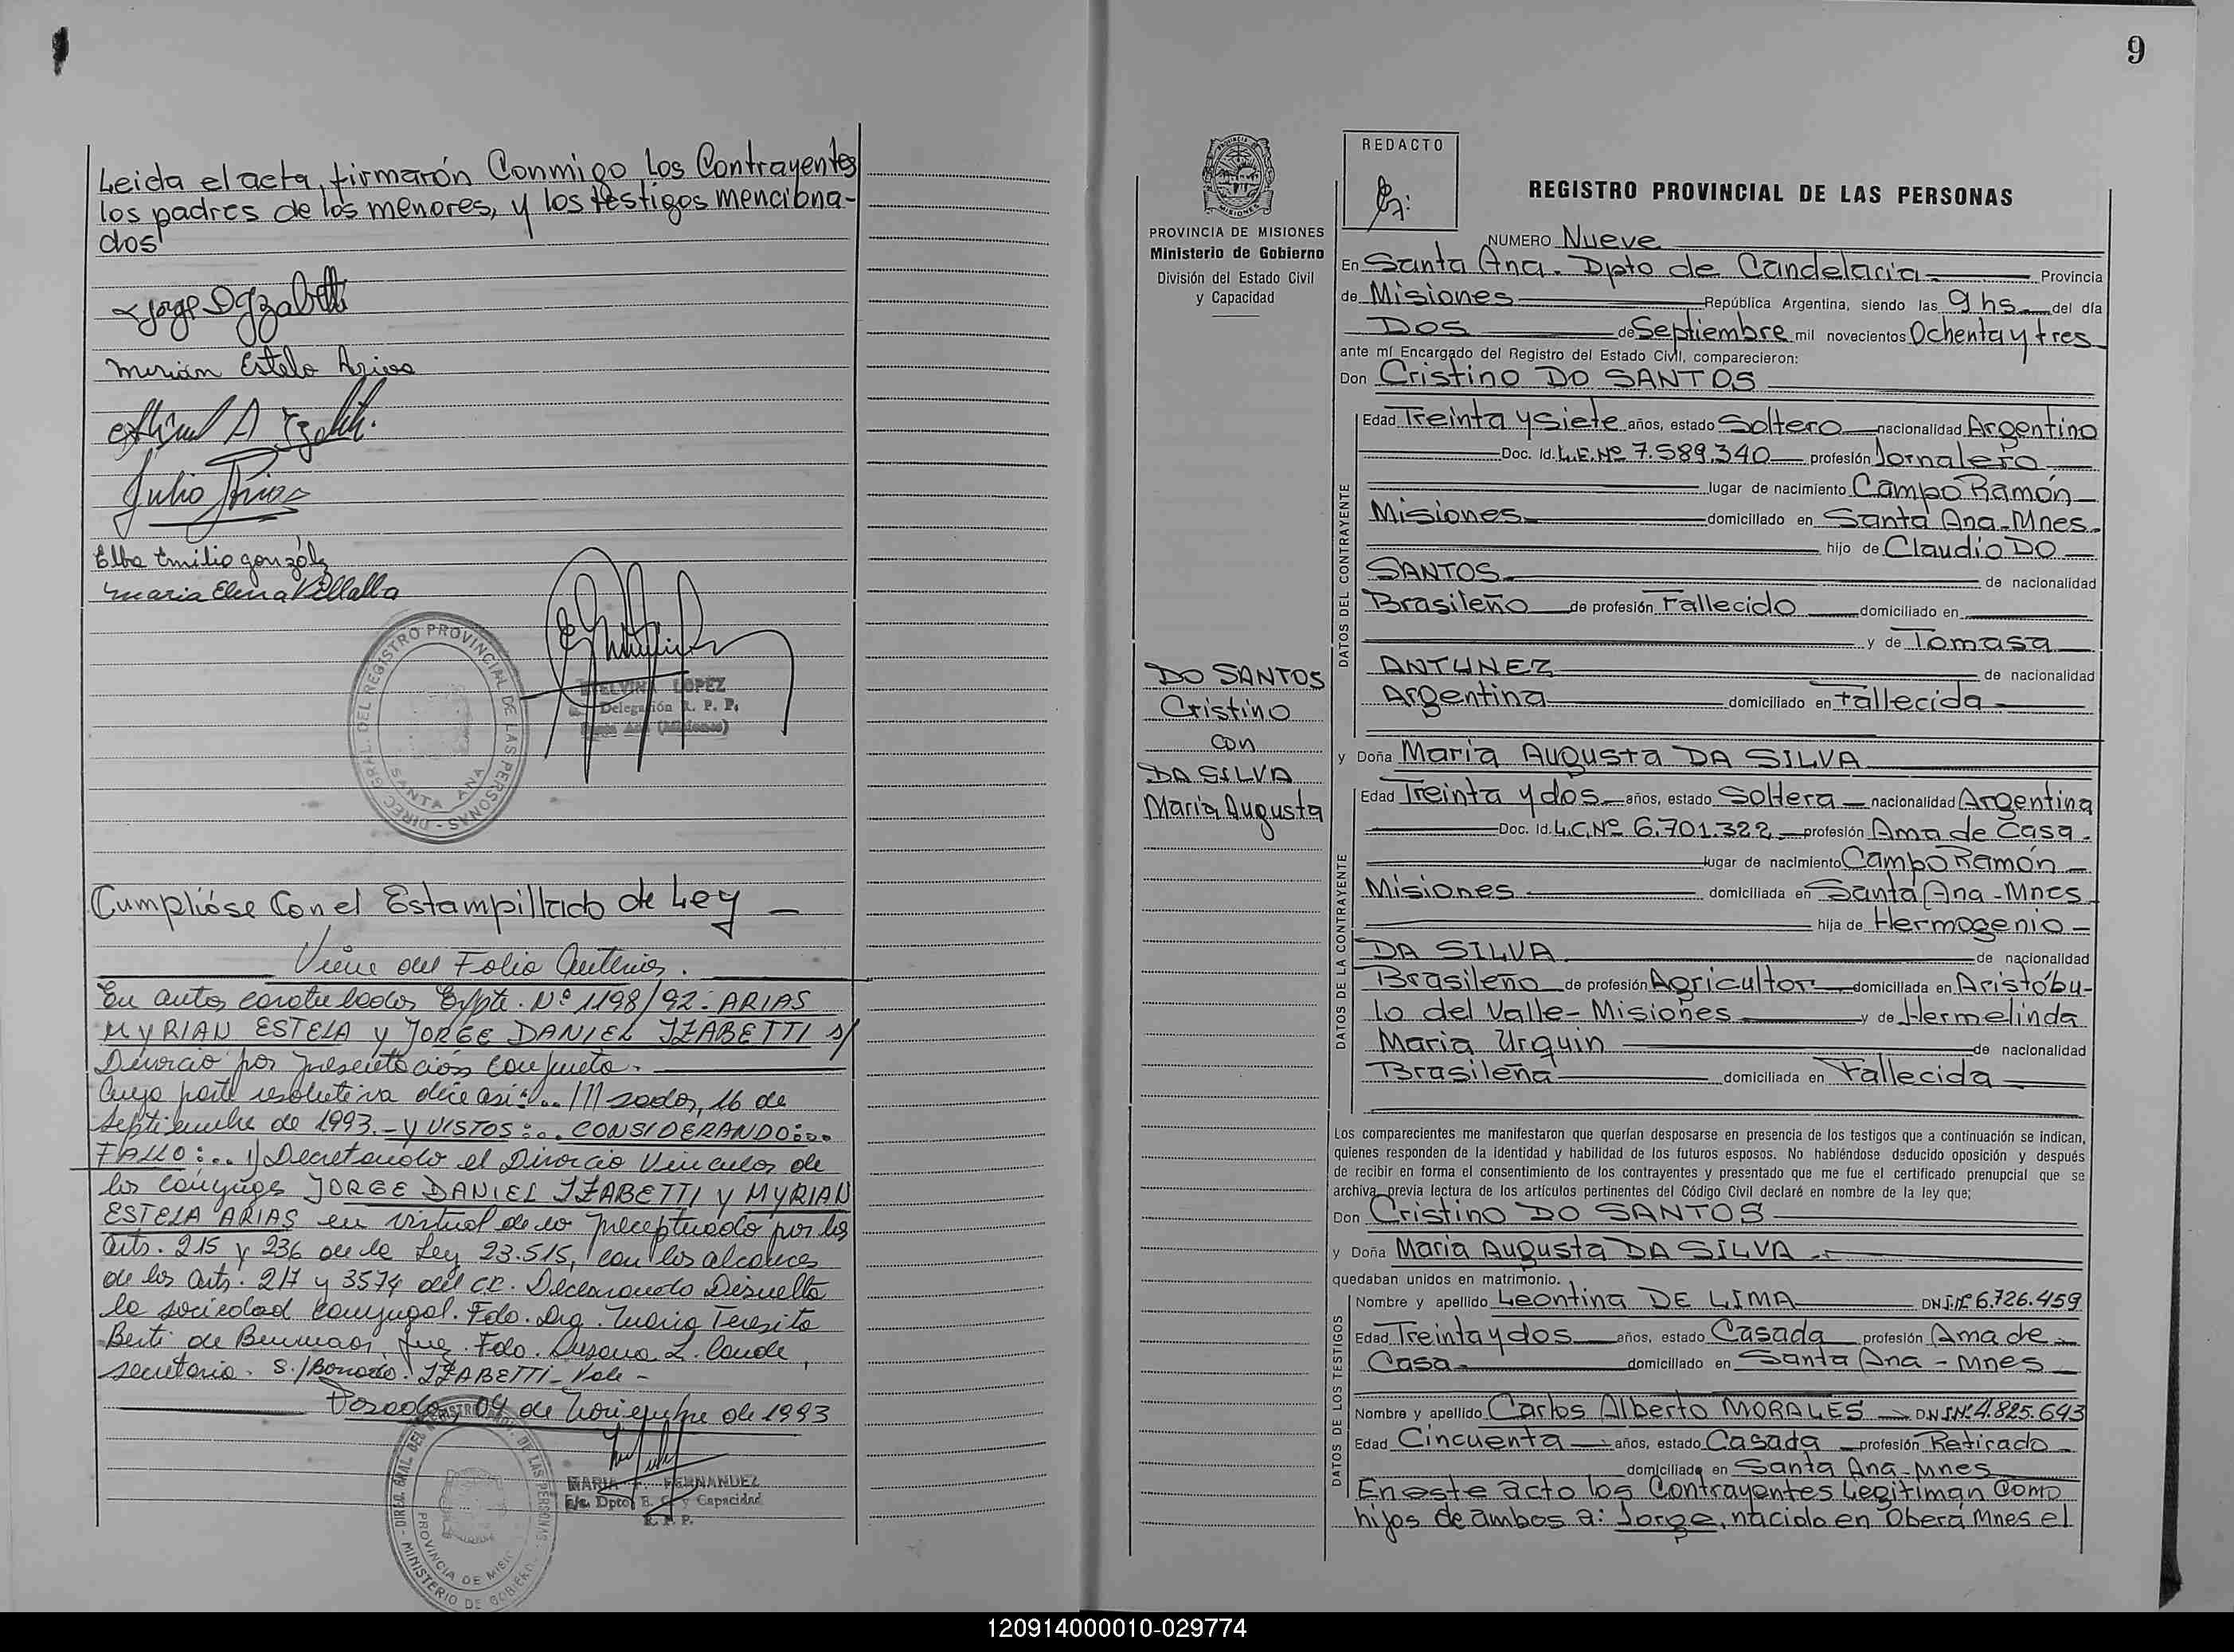 Leida el acta, firmarón Conmigo, los Contrayentes
los padres de los menores, y los testigos menciona-
dos
Julio Arias
Elba Emilio gonzólz
Maria Elena Villalla
DIREC. GRAL. DEL REGISTRO PROVINCIAL DE LAS PERSONAS -
SANTA ANA
ELVINA LOPEZ
Delegación R. P. P.
Santa Ana (Misiones)
Cumplióse Con el Estampillado de Ley —
Viene del Folio Anterior.
En autos caratulados Expte. Nº 1198/92: ARIAS
MYRIAN ESTELA y JORGE DANIEL IZABETTI s/
Divorcio por presentación conjunta.
Cuya parte resolutiva dice así:... ///sadas, 16 de
Septiembre de 1993.- Y VISTOS:... CONSIDERANDO:...
FALLO:... 1) Decretando el Divorcio Vincular de
los cónyuges JORGE DANIEL IZABETTI y MYRIAN
ESTELA ARIAS en virtud de lo preceptuado por los
arts. 215 y 236 de la Ley 23.515, con los alcances
de los arts. 217 y 3574 del C.C. Declarando Disuelta
la sociedad conyugal. Fdo. Dra. Maria Teresita
Berti de Juez. Fdo. Susana L.
secretaria. S./Borrado: IZABETTI - Vale -
Posadas, 09 de Noviembre de 1993
MARIA FERNANDEZ
Dpto. E. C. y Capacidad
R. P. P.
DIREC. GRAL. DEL REGISTRO PROV. DE LAS PERSONAS - MINISTERIO DE GOBIERNO
PROVINCIA DE MISIONES
9
PROVINCIA DE MISIONES
Ministerio de Gobierno
División del Estado Civil
y Capacidad
REDACTO
REGISTRO PROVINCIAL DE LAS PERSONAS
NUMERO Nueve
En Santa Ana. Dpto de Candelaria Provincia
de Misiones República Argentina, siendo las 9 hs del día
Dos de Septiembre mil novecientos Ochenta y tres
ante mí Encargado del Registro del Estado Civil, comparecieron:
Don Cristino DO SANTOS
DATOS DEL CONTRAYENTE
Edad Treinta y Siete años, estado Soltero nacionalidad Argentino
Doc. Id. L.E. Nº 7.589.340 profesión Jornalero
lugar de nacimiento Campo Ramón
Misiones domiciliado en Santa Ana-Mnes.
hijo de Claudio DO
SANTOS de nacionalidad
Brasileño de profesión Fallecido domiciliado en
y de Tomasa
ANTUNEZ de nacionalidad
Argentina domiciliado en Fallecida
DO SANTOS
Cristino
con
DA SILVA
Maria Augusta
y Doña Maria Augusta DA SILVA
DATOS DE LA CONTRAYENTE
Edad Treinta y dos años, estado Soltera nacionalidad Argentina
Doc. Id. L.C. Nº 6.701.322 profesión Ama de Casa.
lugar de nacimiento Campo Ramón
Misiones domiciliada en Santa Ana-Mnes
hija de Hermogenio
DA SILVA de nacionalidad
Brasileño de profesión Agricultor domiciliada en Aristóbu-
lo del Valle-Misiones y de Hermelinda
Maria Urquin de nacionalidad
Brasileña domiciliada en Fallecida
Los comparecientes me manifestaron que querían desposarse en presencia de los testigos que a continuación se indican,
quienes responden de la identidad y habilidad de los futuros esposos. No habiéndose deducido oposición y después
de recibir en forma el consentimiento de los contrayentes y presentado que me fue el certificado prenupcial que se
archiva, previa lectura de los artículos pertinentes del Código Civil declaré en nombre de la ley que;
Don Cristino DO SANTOS
y Doña Maria Augusta DA SILVA
quedaban unidos en matrimonio.
DATOS DE LOS TESTIGOS
Nombre y apellido Leontina DE LIMA DNI.Nº 6.726.459
Edad Treinta y dos años, estado Casada profesión Ama de
Casa. domiciliado en Santa Ana - Mnes
Nombre y apellido Carlos Alberto MORALES D.N.I.Nº 4.825.643
Edad Cincuenta años, estado Casada profesión Retirado
domiciliada en Santa Ana-Mnes
En este acto los Contrayentes Legitiman Como
hijos de ambos a: Jorge, nacido en Oberá Mnes el
120914000010-029774